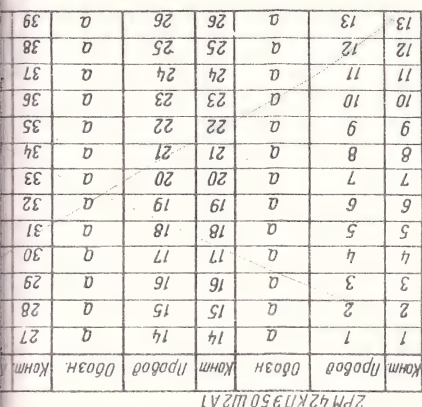 2РМ42КПЭ50Ш2А1
Конт. Провод Обозн Конт Провод Обозн. Конт
1 1 а 14 14 а 27
2 2 а 15 15 а 28
3 3 а 16 16 а 29
4 4 а 17 17 а 30
5 5 а 18 18 а 31
6 6 а 19 19 а 32
7 7 а 20 20 а 33
8 8 а 21 21 а 34
9 9 а 22 22 а 35
10 10 а 23 23 а 36
11 11 а 24 24 а 37
12 12 а 25 25 а 38
13 13 а 26 26 а 39